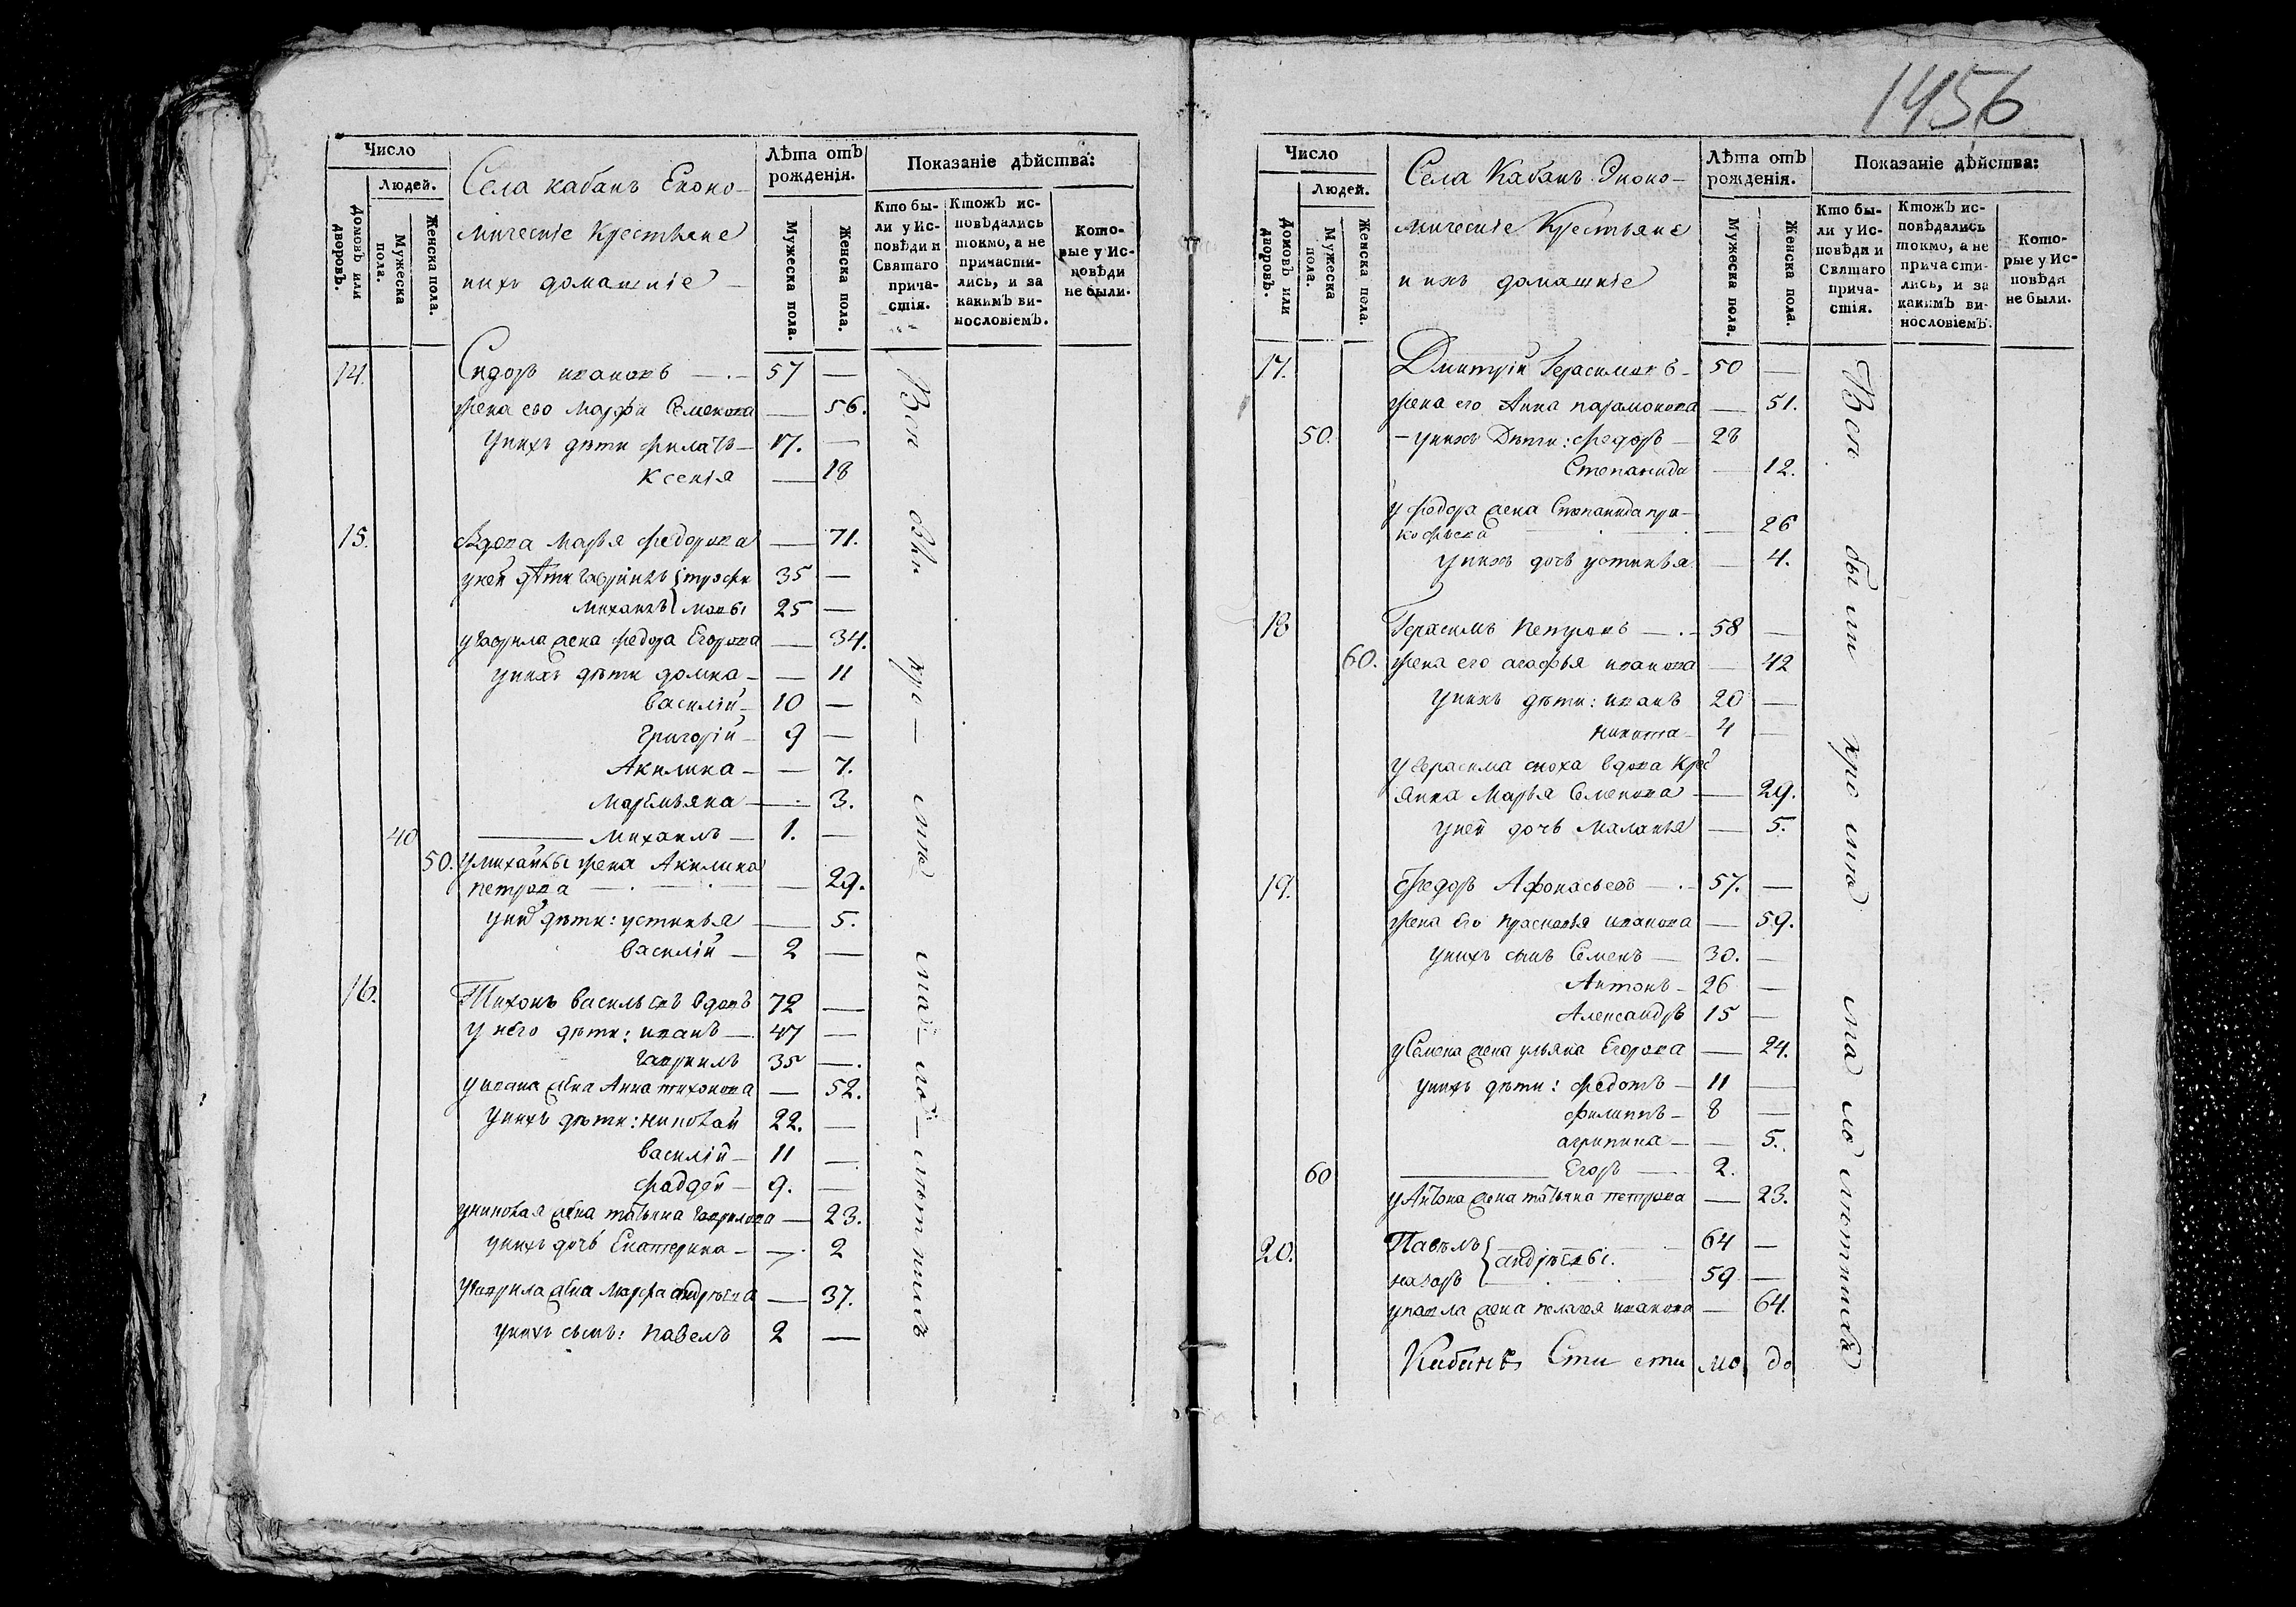 1456
Число
Людей.
Домовъ или дворовъ.
Мужеска пола.
Женска пола.
Села кабанъ Еконо-
мическіе Крестьяне
иихъ домашніе
Лѣта отъ рожденія.
Мужеска пола.
Женска пола.
Показаніе дѣйства:
Кто бы-
ли у Ис-
повѣди и
Святаго
прича-
стія.
Ктожъ ис-
повѣдались
токмо, а не
причасти-
лись, и за
какимъ ви-
нословіемъ.
Кото-
рые у Ис-
повѣди
не были.
14. Сидоръ ивановъ 57 —
жена его Марфа Семенова — 56.
унихъ дѣти филатъ 17. —
Ксенія — 18
15. вдова Марья федорова — 71.
уней дѣти Гаврилъ трофи 35 —
михаилъ мовы 25 —
угаврила жена федора Егорова — 34.
унихъ дѣти домна — 11
василій 10 —
Григорій 9 —
Акилина — 7.
Маремьяна — 3.
40 михаилъ 1. —
50. умихайлы жена Акилина
петрова — 29.
унихъ дѣти: устинья — 5.
василій 2 —
16. Тихонъ васильевъ вдовъ 72 —
у него дѣти: иванъ 47 —
гаврилъ 35 —
уивана жена Анна тихонова — 52.
унихъ дѣти: николай 22. —
василій 11 —
фаддей 9. —
униколая жена татьяна гаврилова — 23.
унихъ дочь Екатерина — 2
угаврила жена Марфа андреева — 37.
унихъ сынъ: павелъ 2 —
Число
Людей.
Домовъ или дворовъ.
Мужеска пола.
Женска пола.
Села Кабанъ Эконо-
мическіе Крестьяне
и ихъ домашніе
Лѣта отъ рожденія.
Мужеска пола.
Женска пола.
Показаніе дѣйства:
Кто бы-
ли у Ис-
повѣди и
Святаго
прича-
стія.
Ктожъ ис-
повѣдались
токмо, а не
причасти-
лись, и за
какимъ ви-
нословіемъ.
Кото-
рые у Ис-
повѣди
не были.
17. Дмитрій Герасимовъ 50 —
жена его Анна парамонова — 51.
50. унихъ Дѣти: федоръ 28
Степанида — 12.
у федора жена Степанида про-
кофьева — 26
унихъ дочь устинья — 4.
18 Герасимъ Петровъ 58 —
60. жена его агафья иванова — 42
унихъ дѣти: иванъ 20 —
никита 4 —
угерасима сноха вдова
Марья Семенова — 29.
уней дочь маланья — 5.
19. Федоръ Афонасьевъ 57. —
жена Его прасковья иванова — 59.
унихъ сынъ Семенъ 30. —
Антонъ 26 —
Александръ 15 —
уСемена жена ульяна Егорова — 24.
унихъ дѣти: федотъ 11 —
филиппъ 8 —
агрипина — 5.
60 Егоръ 2.
уАнтона жена татьяна петрова — 23.
20. Павелъ андреевы. 64 —
назаръ 59 —
упавла жена пелагея иванова — 64.
Всѣ были кро мѣ мало лѣтнихъ